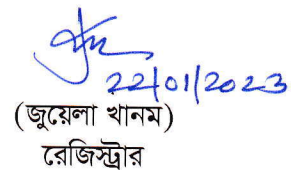 22/01/2023
(জুয়েলা খানম)
রেজিস্ট্রার